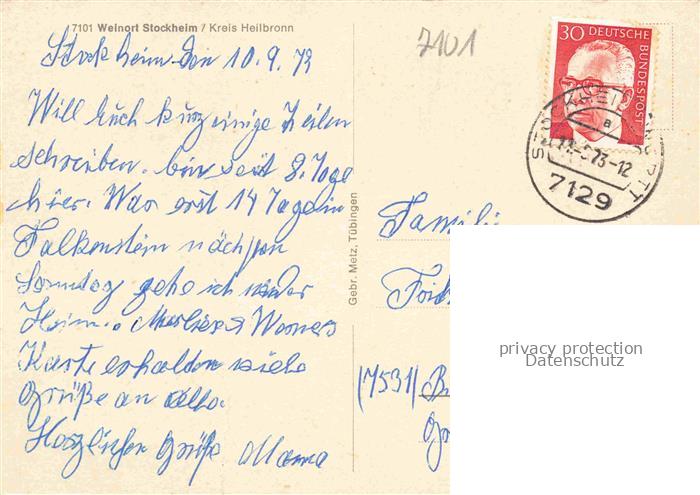 7101 Weinort Stockheim / Kreis Heilbronn
Stockheim den 10.9.73
7101
Will Euch kurz einige Zeilen
schreiben. bin seit 8. Tage
hier. War erst 14 Tage in
Falkenstein nächsten
Sonntag gehe ich wieder
Heim. Marliese & Werners
Karte erhalten viele
Grüße an alle.
Herzlichen Grüße Mama
Gebr. Metz, Tübingen
30 DEUTSCHE
BUNDESPOST
a
73-12
7129
Familie
(7531)
privacy protection
Datenschutz